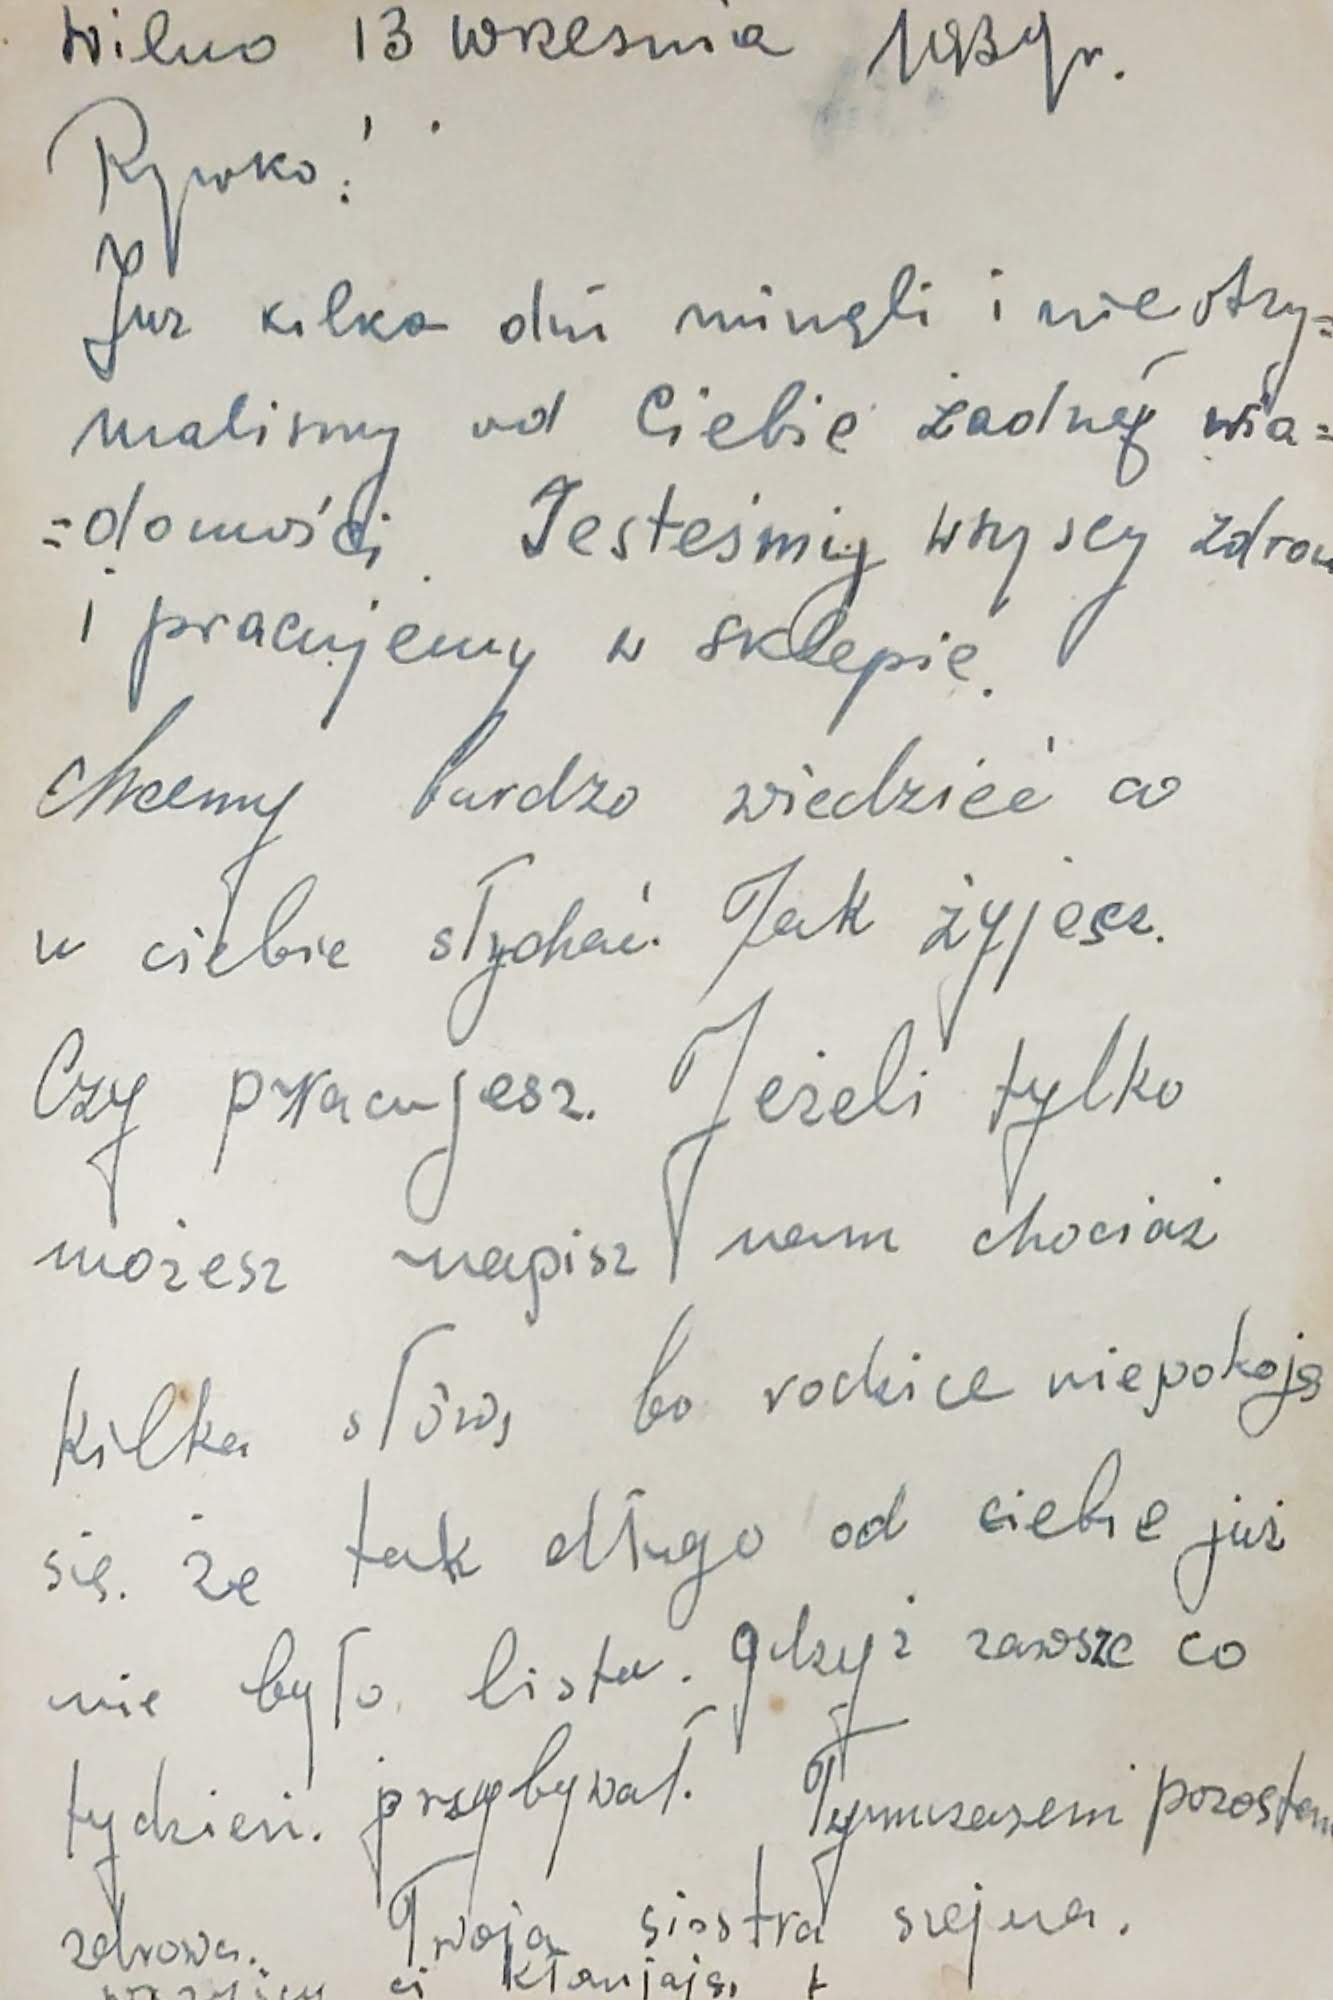 Wilno 13 września 1939r.
Rywko!
Już kilka dni minęli i nie otrzy=
maliśmy od Ciebie żadnęj wia=
=domości. Jesteśmy wszyscy zdrow
i pracujemy w sklepie.
Chcemy bardzo wiedzieć co
u ciebie słychać. Jak żyjesz.
Czy pracujesz. Jeżeli tylko
możesz napisz nam chociaż
kilka słów, bo rodzice niepokoją
się. że tak długo od ciebie już
nie było listu. gdyż zawsze co
tydzień. przybywał. Tymczasem pozostań
zdrowa. Twoja siostra szejna.
wszyscy ci kłaniają.